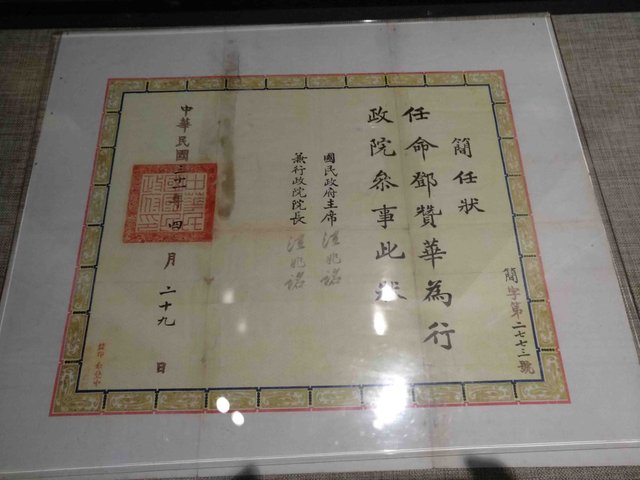 簡任狀
任命鄧贊華為行
政院參事此狀
國民政府主席 汪兆銘
兼行政院院長 汪兆銘
中華民國三十一年四月二十九日
簡字第二七七三號